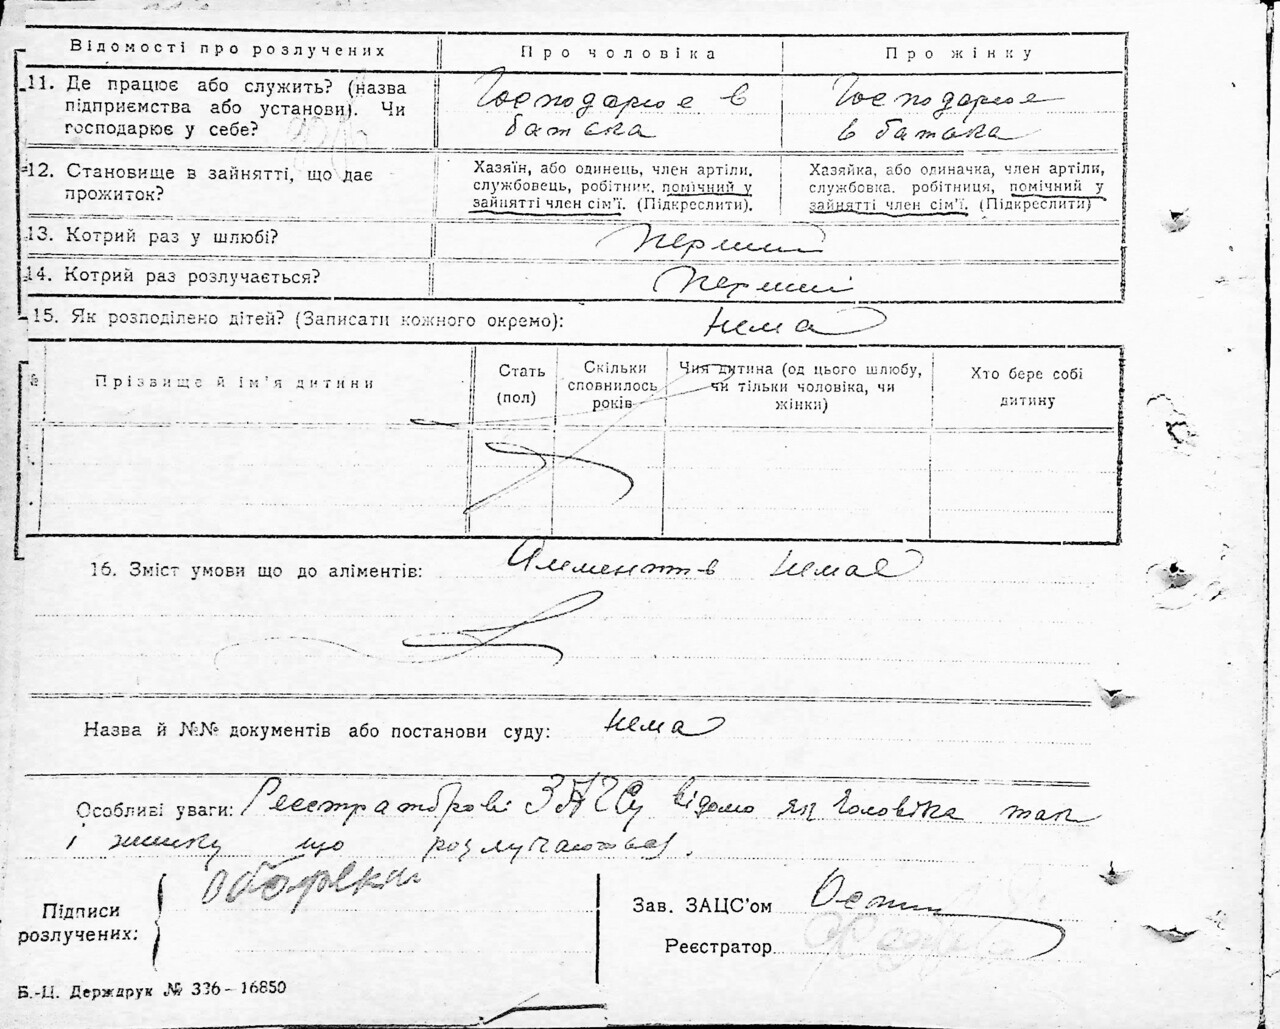 Відомості про розлучених
Про чоловіка
Про жінку
11. Де працює або служить? (назва
підприємства або установи). Чи
господарює у себе?
Господарює в
батька
Господарює
в батька
12. Становище в зайнятті, що дає
прожиток?
Хазяїн, або одинець, член артілі,
службовець, робітник, помічний у
зайнятті член сім'ї. (Підкреслити).
Хазяйка, або одиначка, член артілі,
службовка, робітниця, помічний у
зайнятті член сім'ї. (Підкреслити)
13. Котрий раз у шлюбі?
Перший
14. Котрий раз розлучається?
Перший
15. Як розподілено дітей? (Записати кожного окремо):
Нема
№
Прізвище й ім'я дитини
Стать
(пол)
Скільки
сповнилось
років
Чия дитина (од цього шлюбу,
чи тільки чоловіка, чи
жінки)
Хто бере собі
дитину
16. Зміст умови що до аліментів:
Алементів немає
Назва й №№ документів або постанови суду:
Нема
Особливі уваги: Реєстраторові ЗАГСу відомо як чоловіка так
і жинку що розлучаються.
Підписи
розлучених:
Зав. ЗАЦС'ом
Реєстратор
Б.-Ц. Держдрук № 336–16850